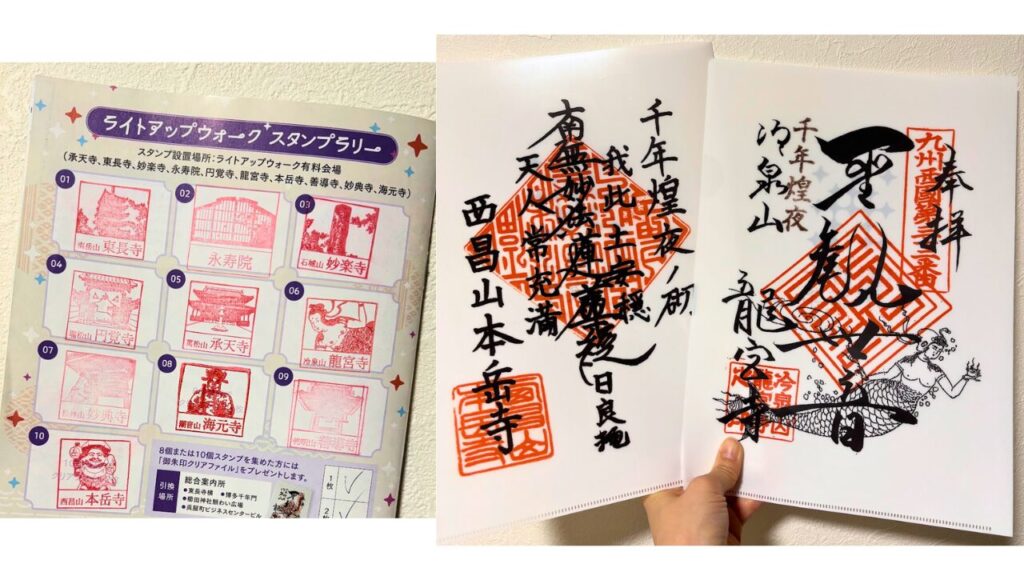 ライトアップウォーク スタンプラリー
スタンプ設置場所:ライトアップウォーク有料会場
(承天寺、東長寺、妙楽寺、永寿院、円覚寺、龍宮寺、本岳寺、善導寺、妙典寺、海元寺)
01
東長寺
02
永寿院
03
石城山 妙楽寺
04
円覚寺
05
萬松山 承天寺
06
冷泉山 龍宮寺
07
妙典寺
08
海元寺
09
10
西昌山 本岳寺
8個または10個スタンプを集めた方には
「御朱印クリアファイル」をプレゼントします。
引換
場所
総合案内所
●東長寺横 ●博多千年門
●櫛田神社賑わい広場
●呉服町ビジネスセンタービル
1枚
2枚
千年煌夜
我此土安穏
南無妙法蓮華経
天人常充満
西昌山本岳寺
奉拝
九州西国第三十三番
聖観世音
千年煌夜
冷泉山
龍宮寺